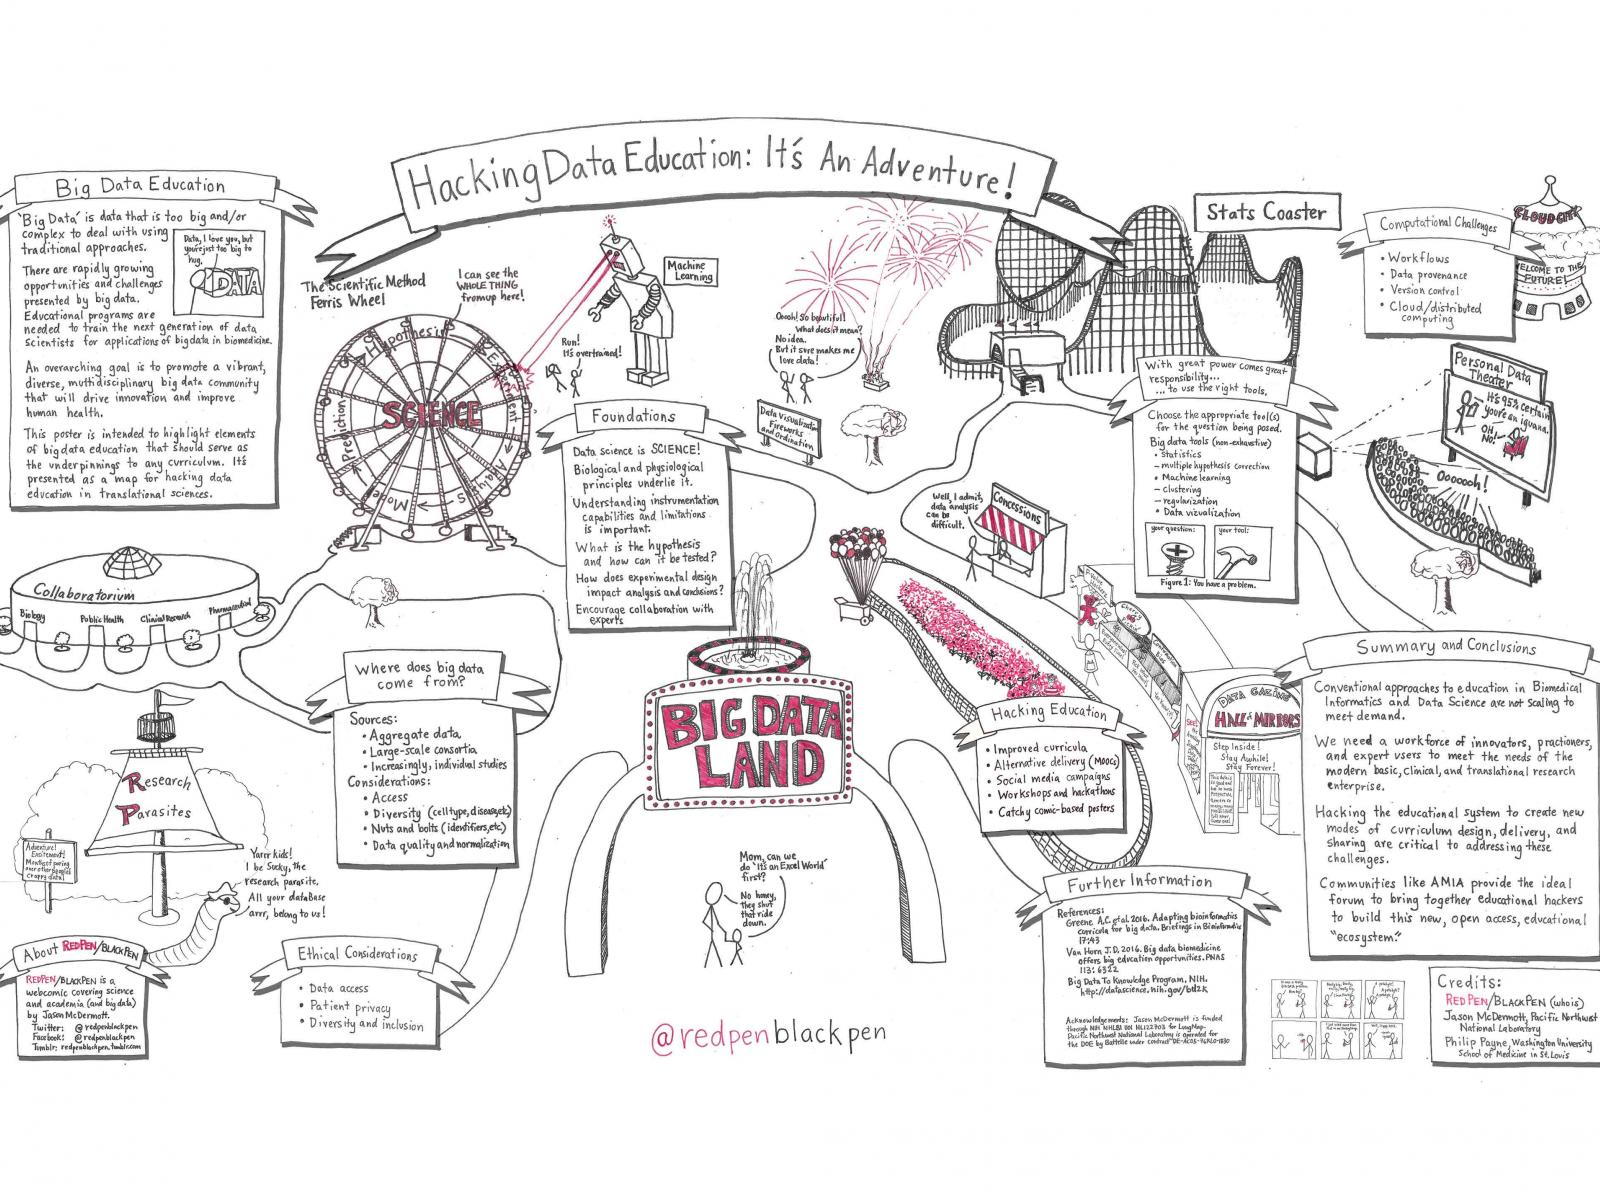 Hacking Data Education: It's An Adventure!
Big Data Education
"Big Data" is data that is too big and/or
complex to deal with using
traditional approaches.
Data, I love you, but
you're just too big to
hug.
DATA
There are rapidly growing
opportunities and challenges
presented by big data.
Educational programs are
needed to train the next generation of data
scientists for applications of big data in biomedicine.
An overarching goal is to promote a vibrant,
diverse, multidisciplinary big data community
that will drive innovation and improve
human health.
This poster is intended to highlight elements
of big data education that should serve as
the underpinnings to any curriculum. It's
presented as a map for hacking data
education in translational sciences.
The Scientific Method
Ferris Wheel
I can see the
WHOLE THING
from up here!
Hypothesis
Experiment
Analysis
Model
Prediction
SCIENCE
Machine
Learning
Run!
It's overtrained!
Foundations
Data science is SCIENCE!
Biological and physiological
principles underlie it.
Understanding instrumentation
capabilities and limitations
is important.
What is the hypothesis
and how can it be tested?
How does experimental design
impact analysis and conclusions?
Encourage collaboration with
experts
Oooh! So beautiful!
What does it mean?
No idea.
But it sure makes me
love data!
Data Visualization
Fireworks
and Ordination
Stats Coaster
With great power comes great
responsibility...
... to use the right tools.
Choose the appropriate tool(s)
for the question being posed.
Big data tools (non-exhaustive)
• Statistics
– multiple hypothesis correction
• Machine learning
– clustering
– regularization
• Data vizualization
your question:
your tool:
Figure 1: You have a problem.
Computational Challenges
• Workflows
• Data provenance
• Version control
• Cloud/distributed
computing
CLOUD CITY
WELCOME TO THE
FUTURE!
Personal Data
Theater
It's 95% certain
you're an iguana.
OH,
NO!
Oooooh!
Well, I admit,
data analysis
can be
difficult.
Concessions
Collaboratorium
Biology
Public Health
Clinical Research
Pharmaceutical
Where does big data
come from?
Sources:
• Aggregate data
• Large-scale consortia
• Increasingly, individual studies
Considerations:
• Access
• Diversity (cell type, disease, etc)
• Nuts and bolts (identifiers, etc.)
• Data quality and normalization
BIG DATA
LAND
Mom, can we
do 'It's an Excel World'
first?
No honey,
they shut
that ride
down.
@redpenblackpen
Research
Parasites
Adventure!
Excitement!
Yarrr kids!
I be Sucky, the
research parasite.
All your dataBase
arrr, belong to us!
About REDPEN/BLACKPEN
REDPEN/BLACKPEN is a
webcomic covering science
and academia (and big data)
by Jason McDermott.
Twitter: @redpenblackpen
Facebook: @redpenblackpen
Tumblr: redpenblackpen.tumblr.com
Ethical Considerations
• Data access
• Patient privacy
• Diversity and inclusion
Hacking Education
• Improved curricula
• Alternative delivery (MOOCs)
• Social media campaigns
• Workshops and hackathons
• Catchy comic-based posters
DATA GAZING
HALL of MIRRORS
Step Inside!
Stay Awhile!
Stay Forever!
Further Information
References:
Greene A.C. et al. 2016. Adapting bioinformatics
curricula for big data. Briefings in Bioinformatics
17:43
Van Horn J.D. 2016. Big data biomedicine
offers big education opportunities. PNAS
113: 6322
Big Data To Knowledge Program, NIH.
http://datascience.nih.gov/bd2k
Acknowledgements: Jason McDermott is funded
Pacific Northwest National Laboratory is operated for
the DOE by Battelle under contract
Summary and Conclusions
Conventional approaches to education in Biomedical
Informatics and Data Science are not scaling to
meet demand.
We need a workforce of innovators, practioners,
and expert users to meet the needs of the
modern basic, clinical, and translational research
enterprise.
Hacking the educational system to create new
modes of curriculum design, delivery, and
sharing are critical to addressing these
challenges.
Communities like AMIA provide the ideal
forum to bring together educational hackers
to build this new, open access, educational
"ecosystem."
Credits:
REDPEN/BLACKPEN (whois)
Jason McDermott, Pacific Northwest
National Laboratory
Philip Payne, Washington University
School of Medicine in St. Louis